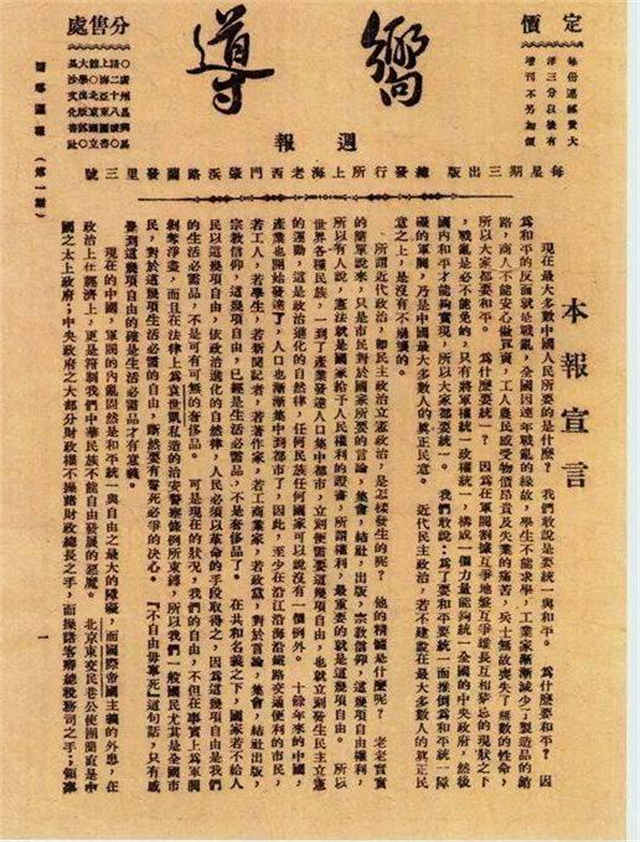 定價
每份連郵費大
洋三分以後有
增刊不另加價
嚮導
週報
分售處
○廣州昌興馬
路二十八號○
上海亞東圖書
館○北京國立
大學出版部○
長沙文化書社
每星期三出版 總發行所上海老西門肇浜路蘭發里三號
本報宣言
現在最大多數中國人民所要的是什麼？ 我們敢說是要統一與和平。 為什麼要和平？ 因
為和平的反面就是戰亂，全國因連年戰亂的緣故，學生不能求學，工業家漸漸減少了製造品的銷
路，商人不能安心做買賣，工人農民感受物價昂貴及失業的痛苦，兵士無故喪失了無數的性命，
所以大家都要和平。 為什麼要統一？ 因為在軍閥割據互爭地盤互爭雄長互相猜忌的現狀之下
，戰亂是必不能免的，只有將軍權統一政權統一，構成一個力量能夠統一全國的中央政府，然後
國內和平才能夠實現，所以大家都要統一。 我們敢說：為了要和平要統一而推倒為和平統一障
礙的軍閥，乃是中國最大多數人的真正民意。 近代民主政治，若不建設在最大多數人的真正民
意之上，是沒有不崩壞的。
所謂近代政治，即民主政治立憲政治，是怎樣發生的呢？ 他的精髓是什麼呢？ 老老實實
的簡單說來，只是市民對於國家所要的言論，集會，結社，出版，宗教信仰，這幾項自由權利，
所以有人說，憲法就是國家給予人民權利的證書，所謂權利，最重要的就是這幾項自由。 所以
世界各種民族，一到了產業發達人口集中都市，立刻便需要這幾項自由，也就立刻發生民主立憲
的運動，這是政治進化的自然律，任何民族任何國家可以說沒有一個例外。 十餘年來的中國，
產業也開始發達了，人口也漸漸集中到都市了，因此，至少在沿江沿海沿鐵路交通便利的市民，
若工人，若學生，若新聞記者，若著作家，若工商業家，若政黨，對於言論，集會，結社，出版，
宗教信仰，這幾項自由，已經是生活必需品，不是奢侈品了。 在共和名義之下，國家若不給人
民以這幾項自由，依政治進化的自然律，人民必須以革命的手段取得之，因為這幾項自由是我們
的生活必需品，不是可有可無的奢侈品。 可是現在的狀況，我們的自由，不但在事實上為軍閥
剝奪淨盡，而且在法律上為袁世凱私造的治安警察條例所束縛，所以我們一般國民尤其是全國市
民，對於這幾項生活必需的自由，斷然要有誓死必爭的決心。 『不自由毋寧死』這句話，只有感
覺到這幾項自由的確是生活必需品才有意義。
現在的中國，軍閥的內亂固然是和平統一與自由之最大的障礙，而國際帝國主義的外患，在
政治上在經濟上，更是箝制我們中華民族不能自由發展的惡魔。 北京東交民巷公使團簡直是中
國之太上政府；中央政府之大部分財政權不操諸財政總長之手，而操諸客卿總稅務司之手；領事
嚮導週報（第一期）
一